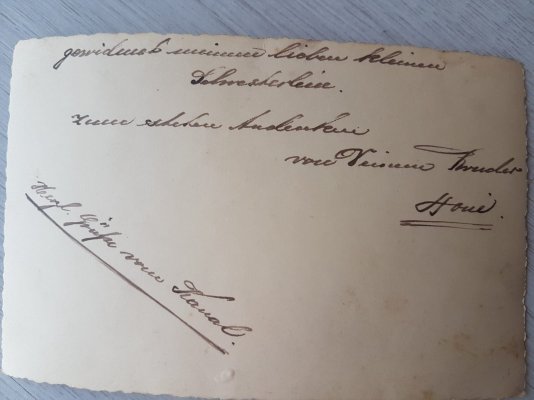 gewidmet meinem lieben kleinen
Schwesterlein.
zum steten Andenken
von Deinem Bruder
Herzl. Grüße vom Kanal.